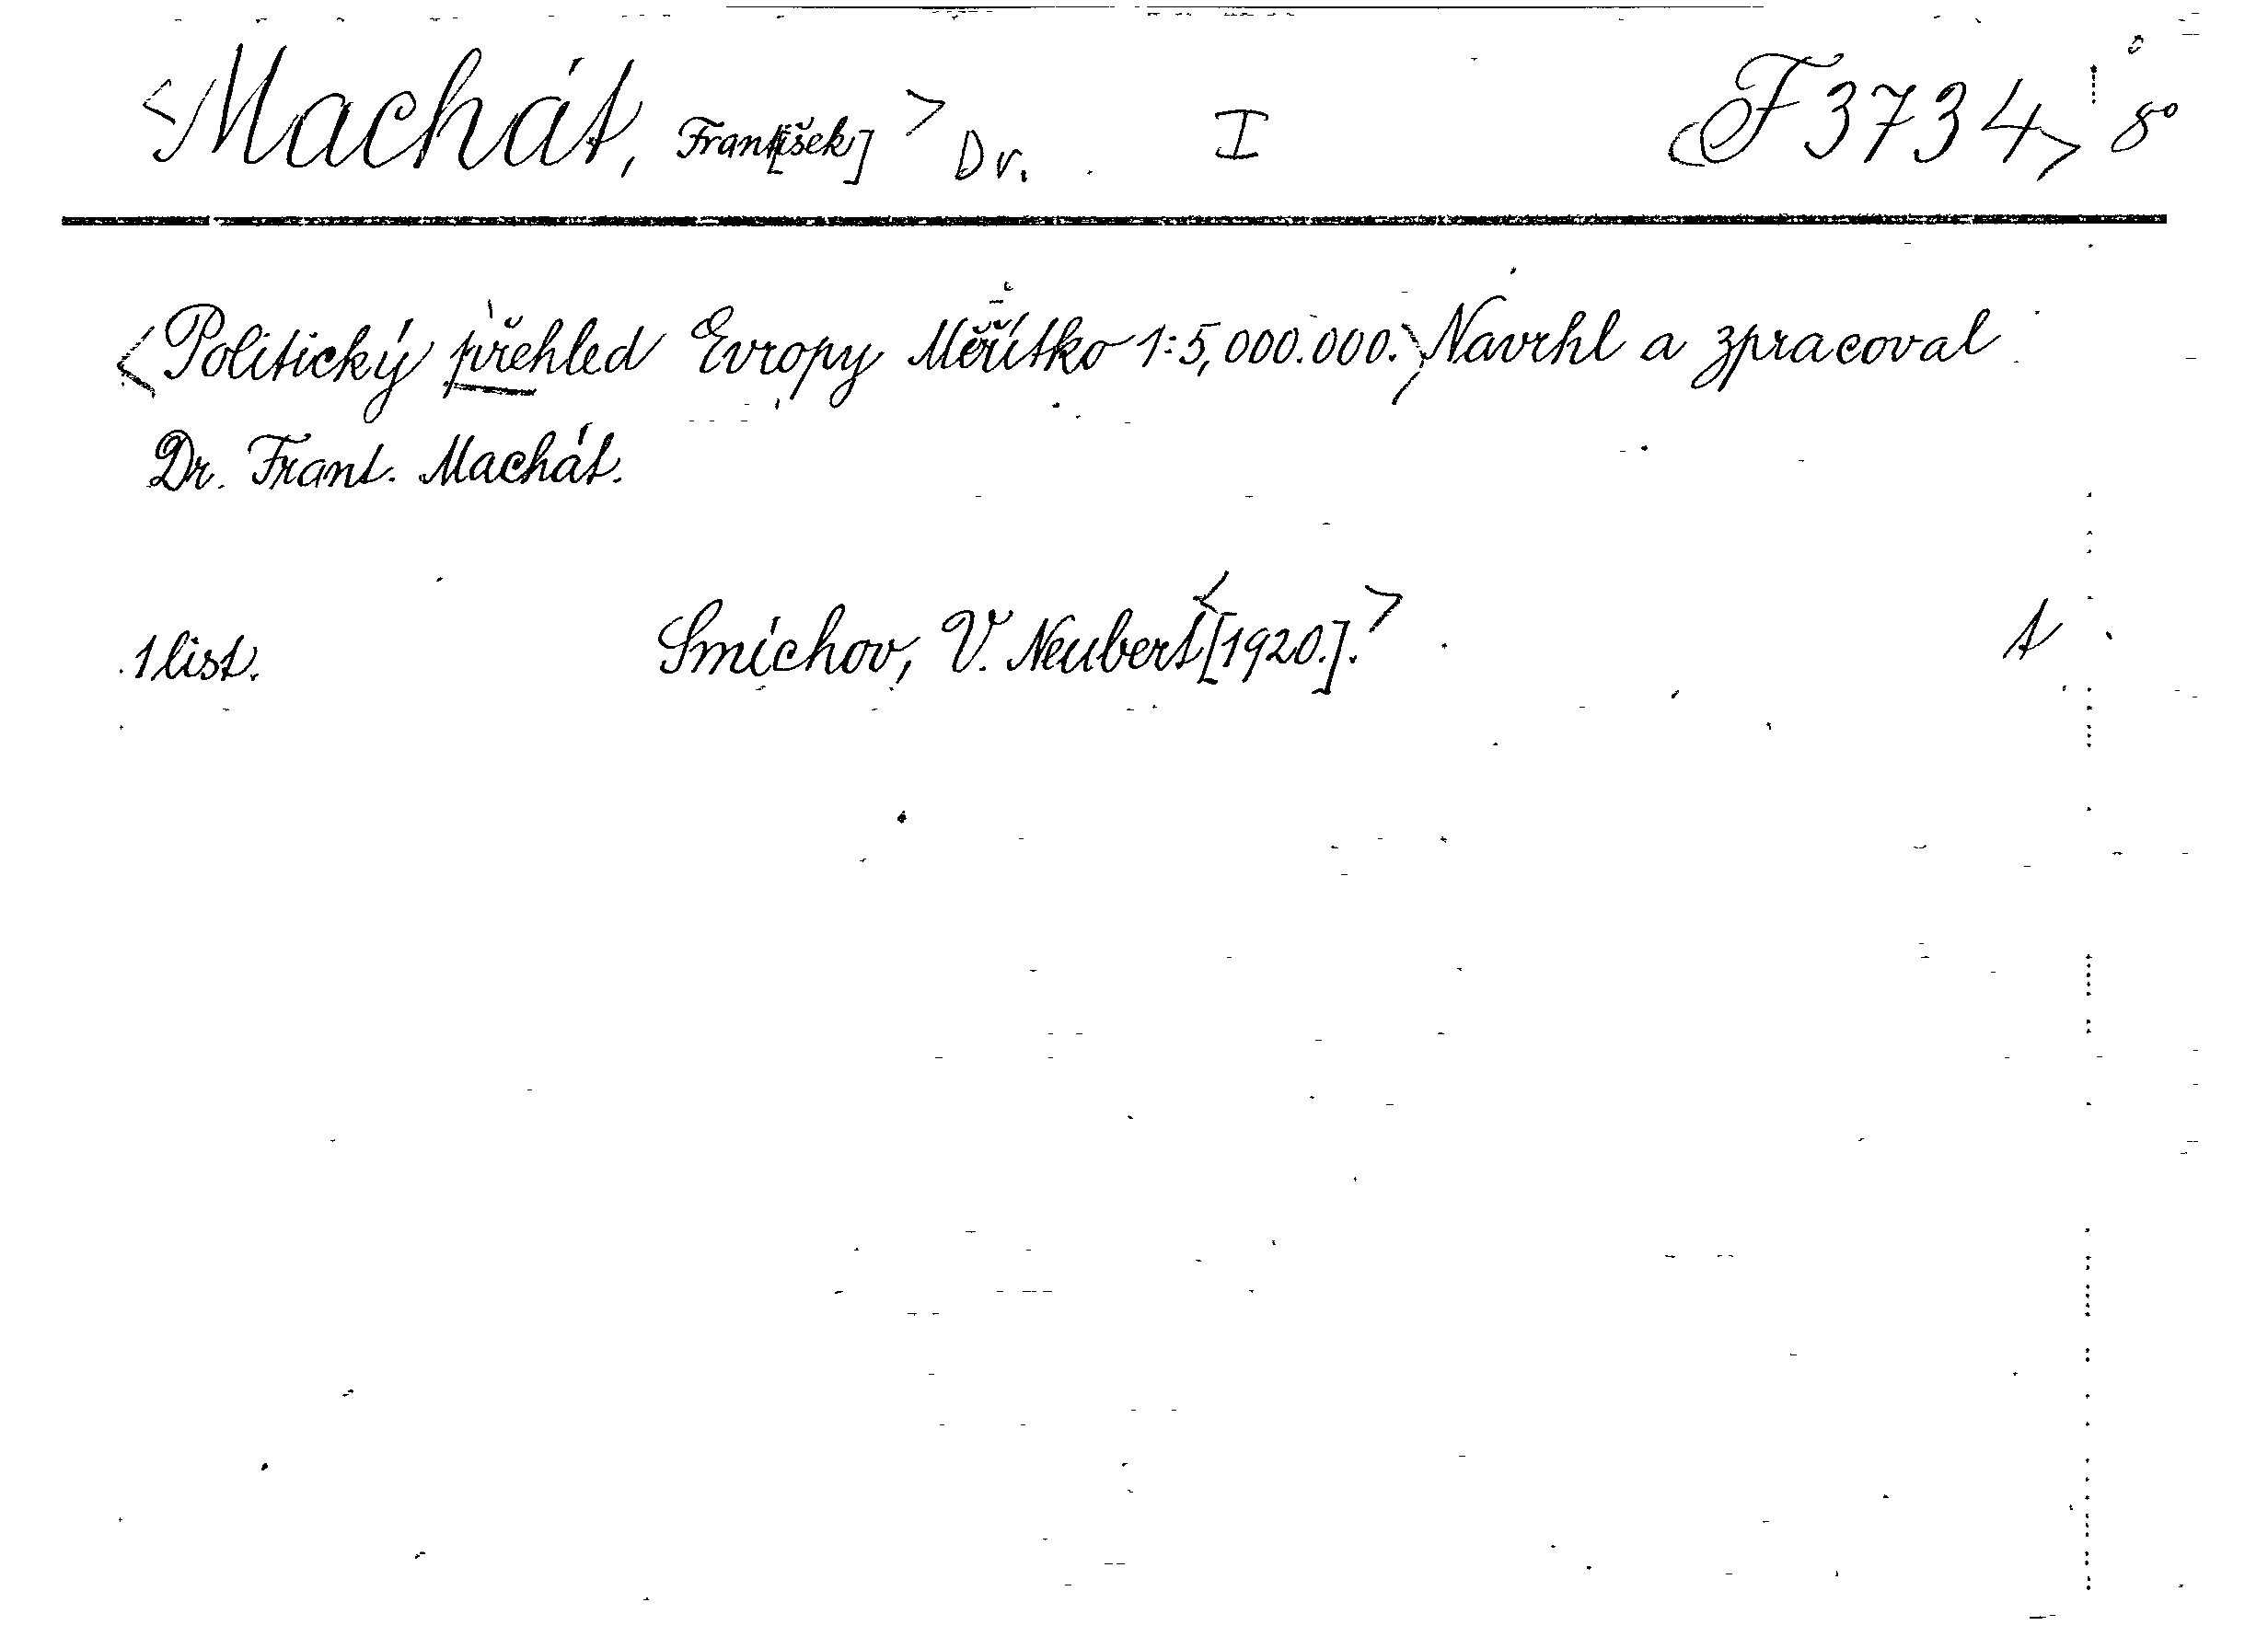 <Machát, Frant[išek]> Dr. I <F 3734> 8°
<Politický přehled Evropy Měřítko 1:5,000.000.> Navrhl a zpracoval
Dr. Frant. Machát.
1 list. Smíchov, V. Neubert <[1920.].> A